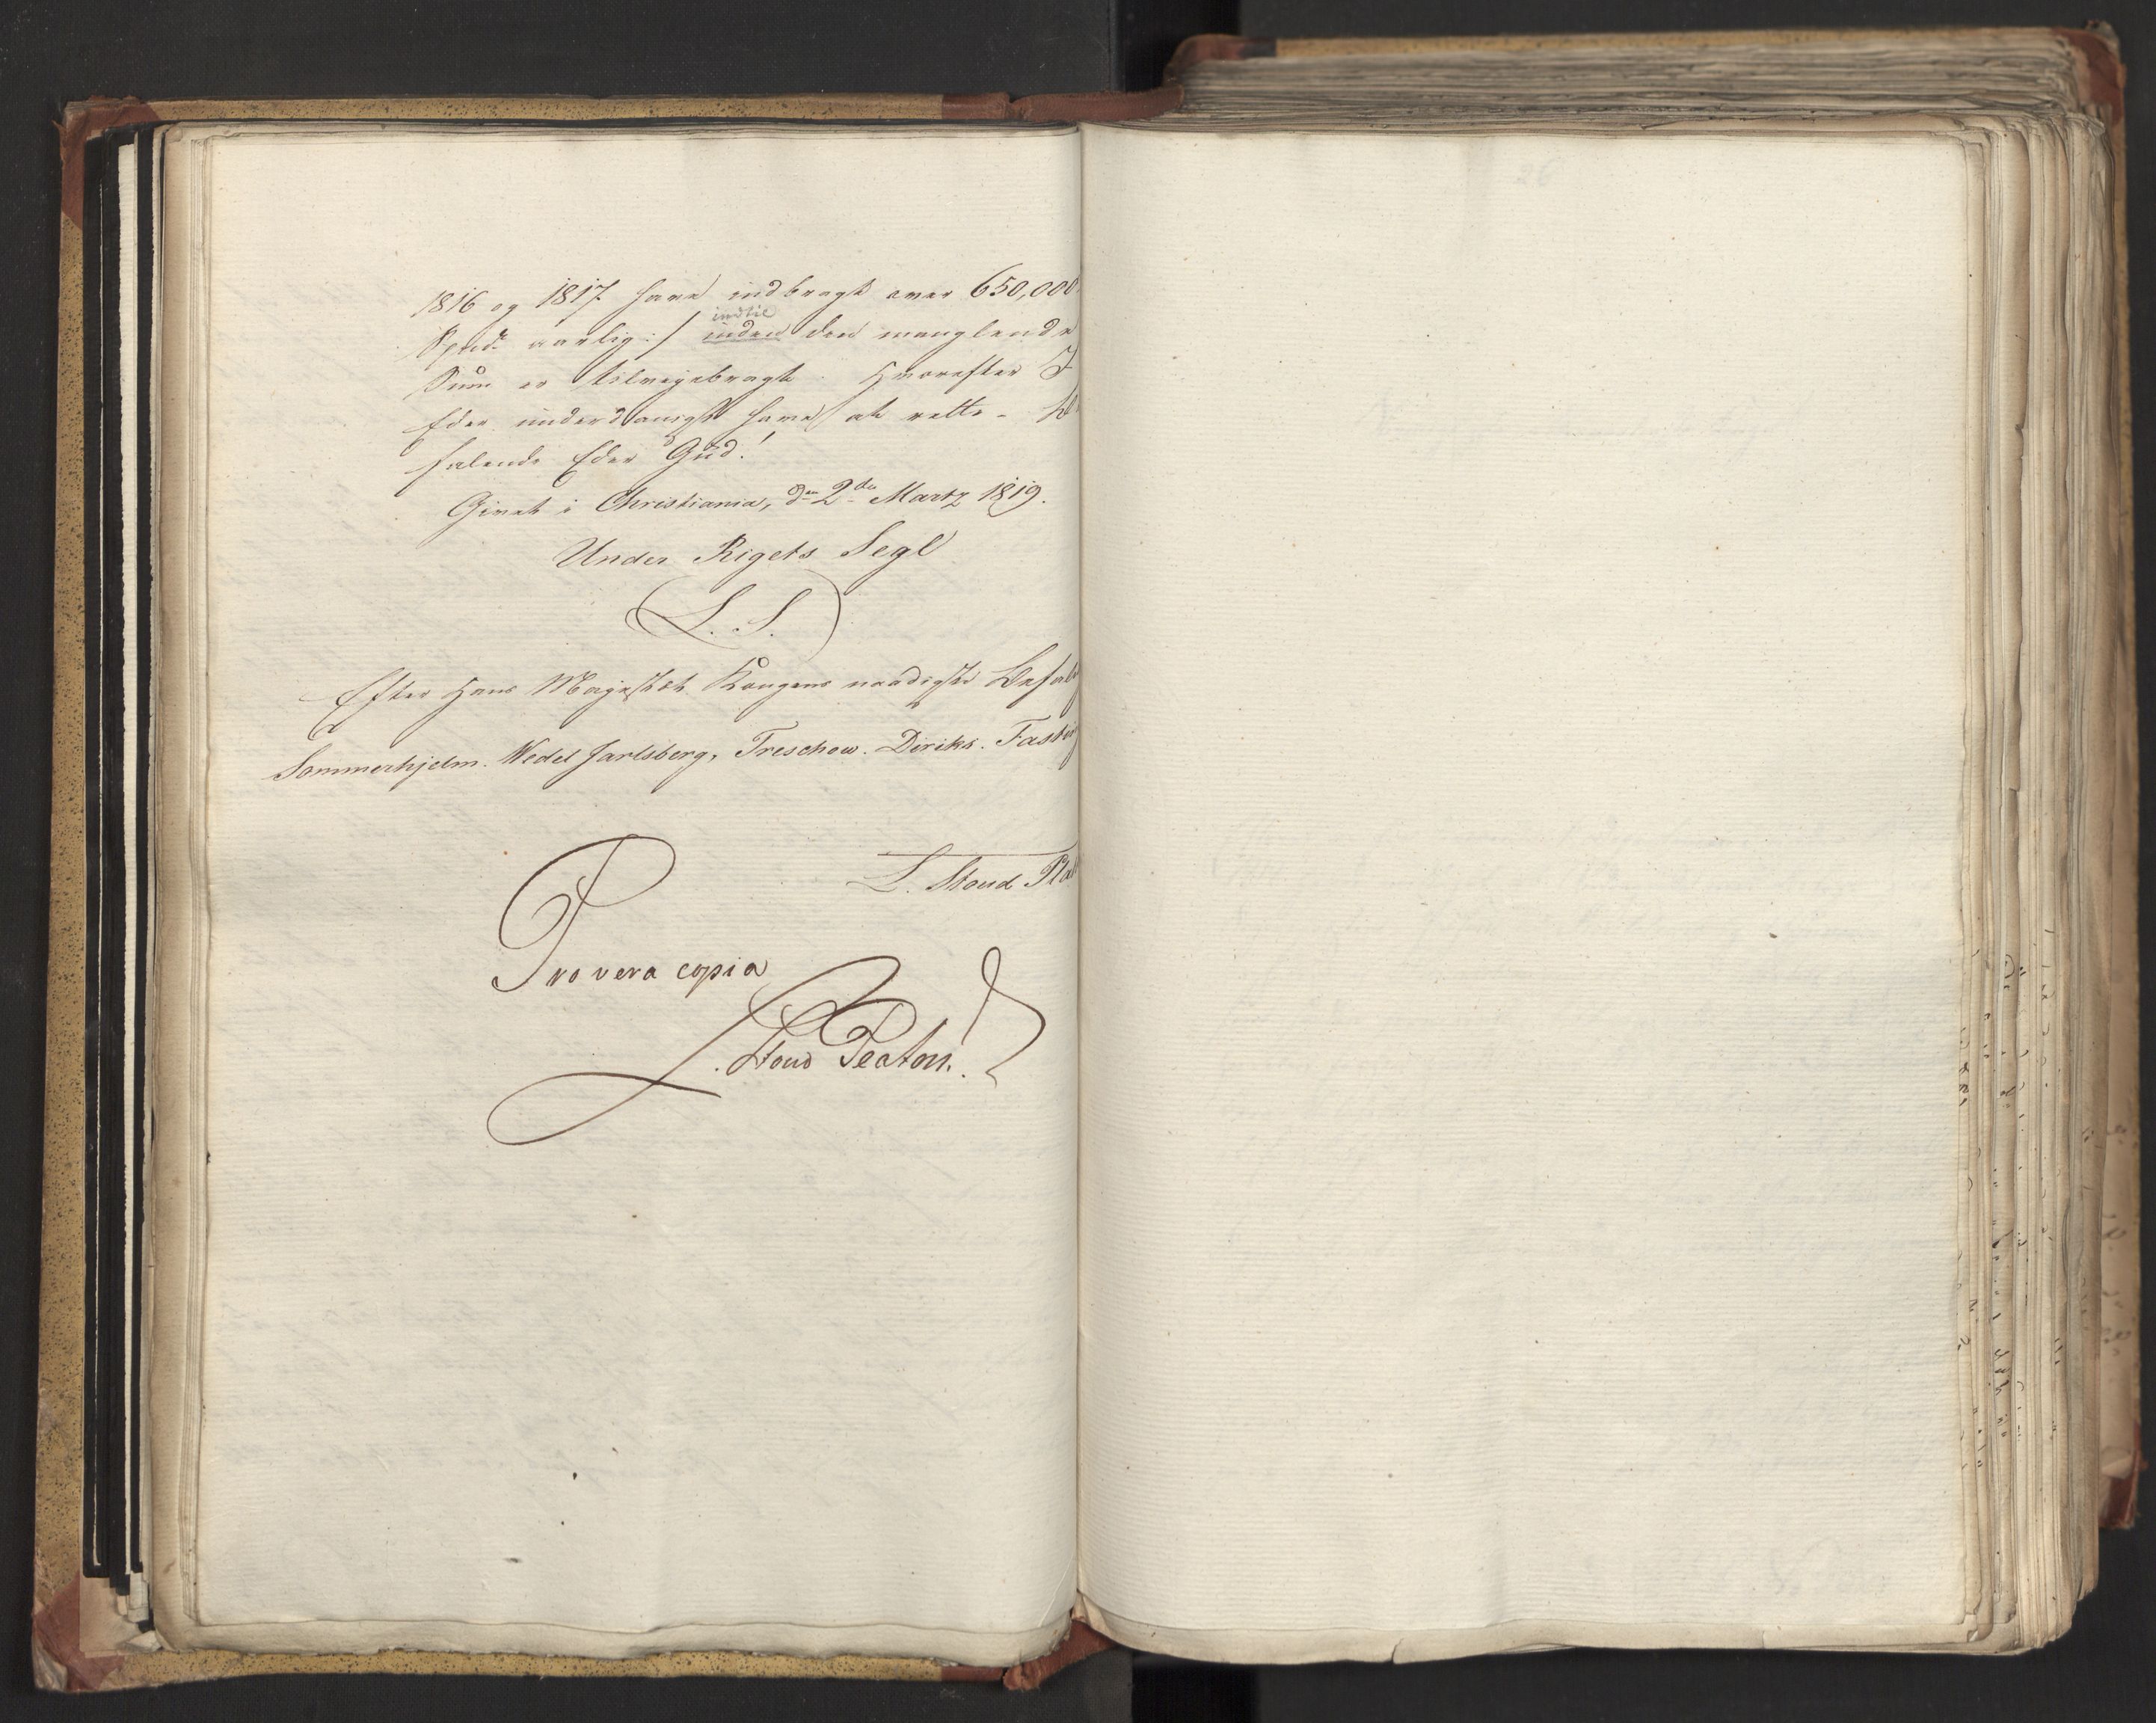 1816 og 1817 have indbragt over 650,000
Spd. aarlig:/ inden den manglende
indtil
Sum er tilveiebragt. Hvorefter I
Eder underdanigst have at rette. 
falende Eder Gud!
Givet i Christiania, dn 2den Martz 1819.
Under Rigets Segl
(L. S.)
Efter Hans Majestæt Kongens naadigste Befal
Sommerhjelm. Wedel Jarlsberg, Treschow. Diriks. Fasti
L. Stoud Plat
Pro vera copia
L. Stoud Platou.